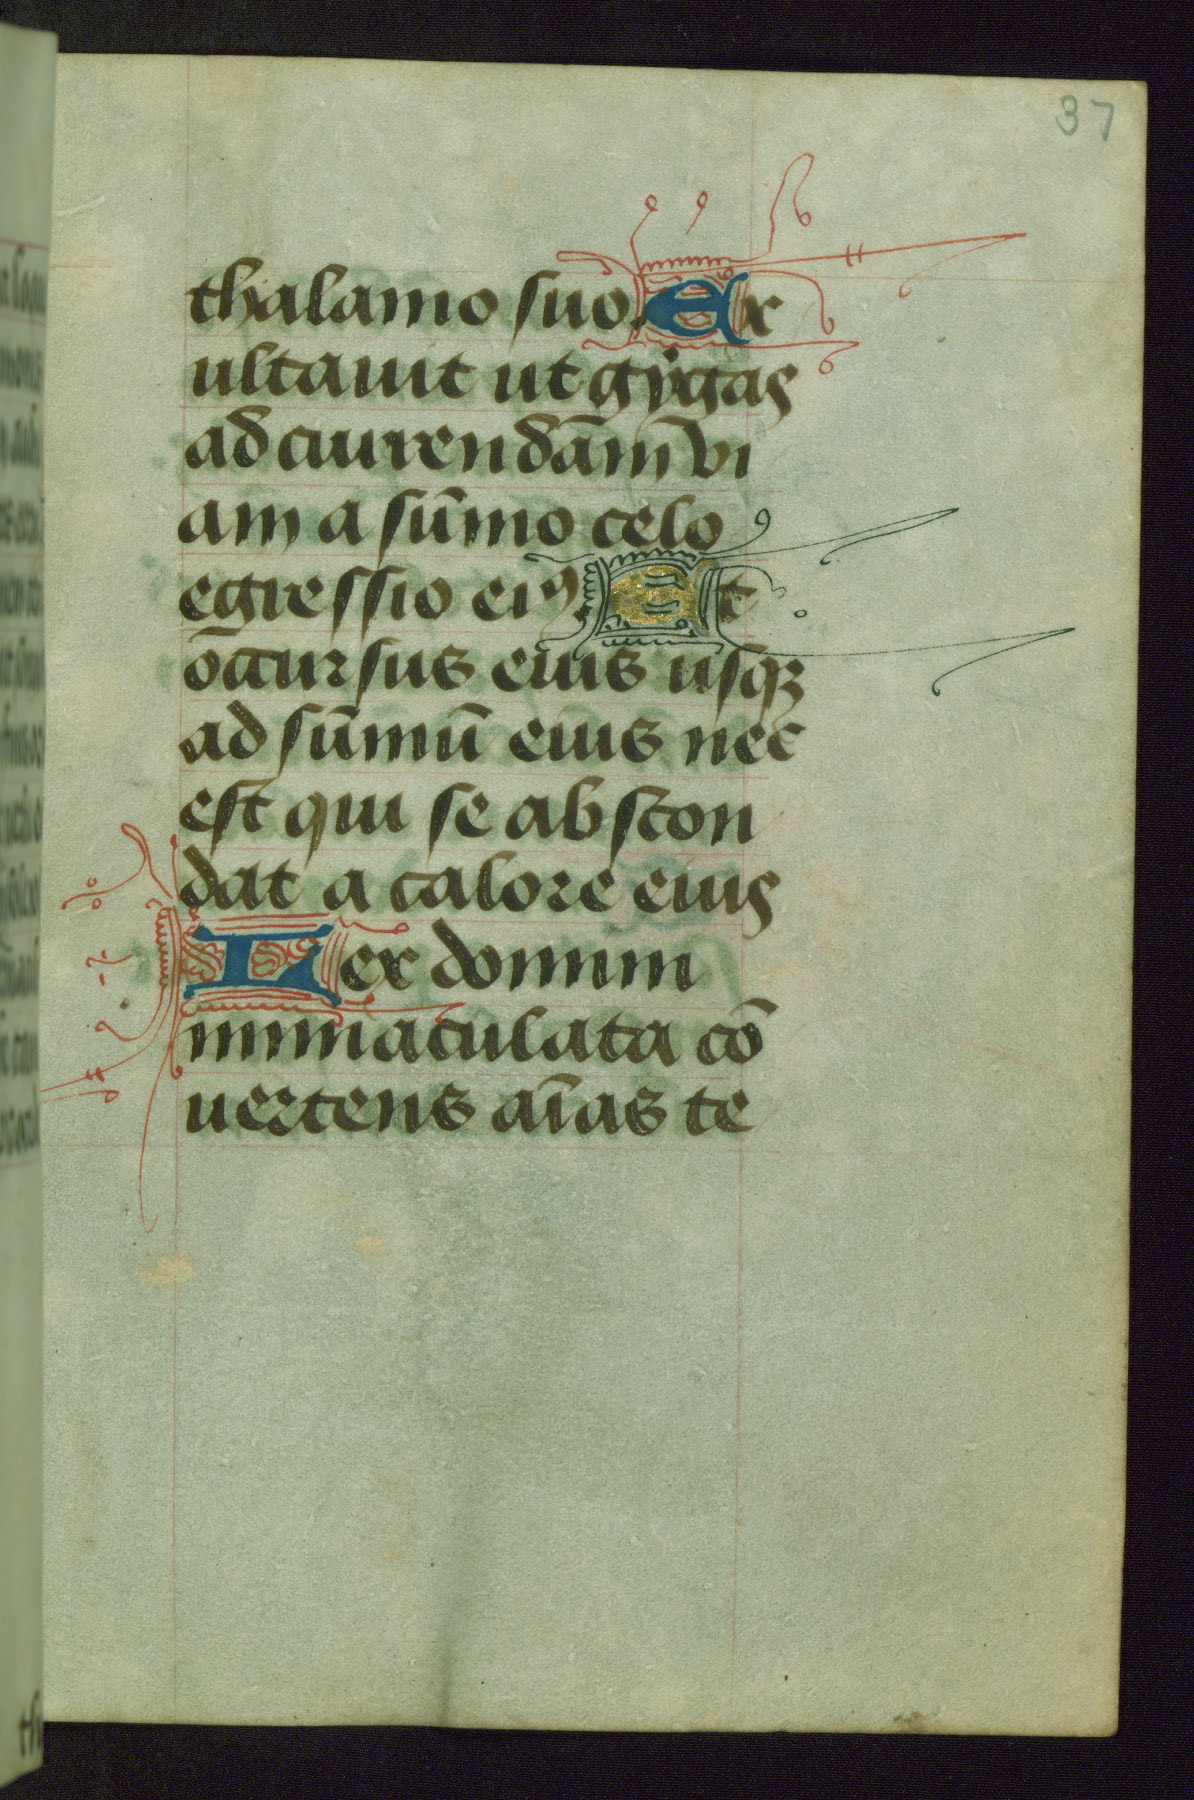 37
thalamo suo. Ex
ultauit ut gẏgas
ad currendām vi
am a sūmo celo
egressio eiꝰ Et
ōccursus eius usqꝫ
ad sūmū eius nec
est qui se abscon
dat a calore eius
Lex domini
immaculata cō
uertens aīas te